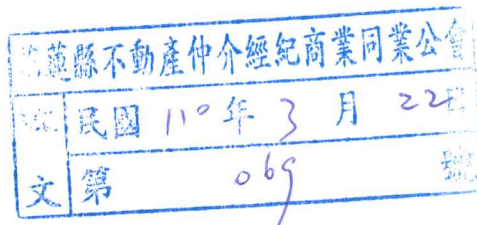 蓮縣不動產仲介經紀商業同業公會
民國 110 年 3 月 22日
文 第 069 號